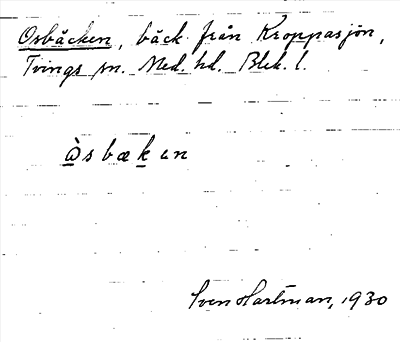 Osbäcken, bäck från Kroppasjön,
Tvings sn. Med. hd. Blek. l.
ꝍ̀sbækən
Sven Hartman, 1930